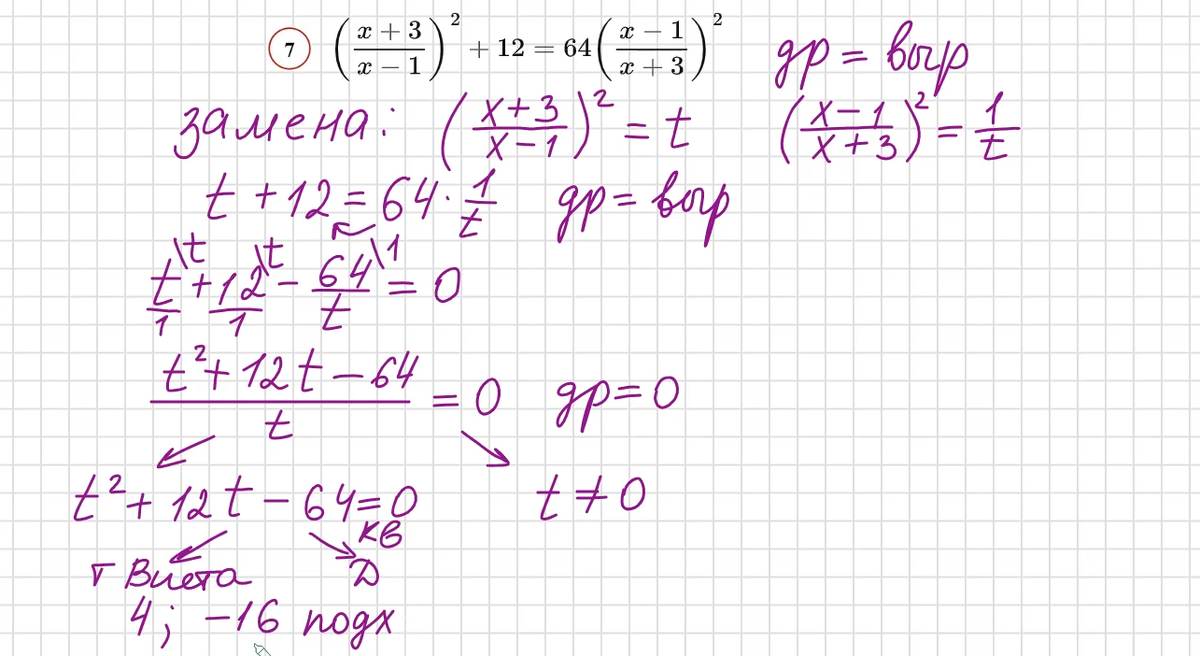 7 ((x + 3)/(x − 1))² + 12 = 64((x − 1)/(x + 3))² др = выр
замена: ((x+3)/(x−1))² = t ((x−1)/(x+3))² = 1/t
t + 12 = 64 · 1/t др = выр
\t \t \1
t/1 + 12/1 − 64/t = 0
(t² + 12t − 64)/t = 0 др = 0
t² + 12t − 64 = 0 t ≠ 0
кв
т Виета D
4; −16 подх